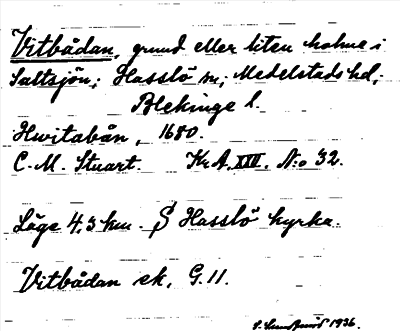 Vitbådan, grund eller liten holme i
Saltsjön; Hasslö sn; Medelstads hd,
Blekinge l.
Hwitabån, 1680.
C. M. Stuart. Kr A. XIII. N:o 32.
Läge 4,3 km. S Hasslö kyrka.
Vitbådan ek. G. 11.
1936.